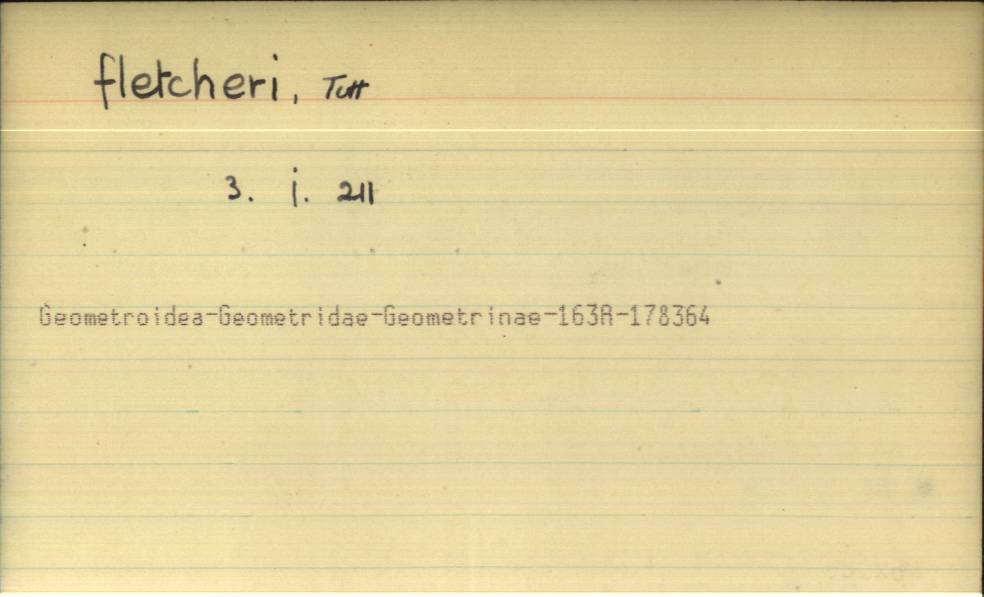 fletcheri, Tutt
3. j. 211
Geometroidea-Geometridae-Geometrinae-163A-178364